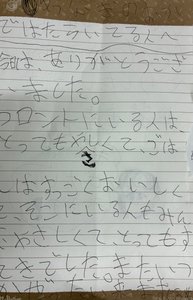 ではたらいてる人へ
毎はありがとうござ
いました。
フロントにいる人は
とってもやしくて、ごは
さ
んはすっごくおいしく
て、そこにいる人もみ
やさしくて、とってもす
てきでした。またいつ